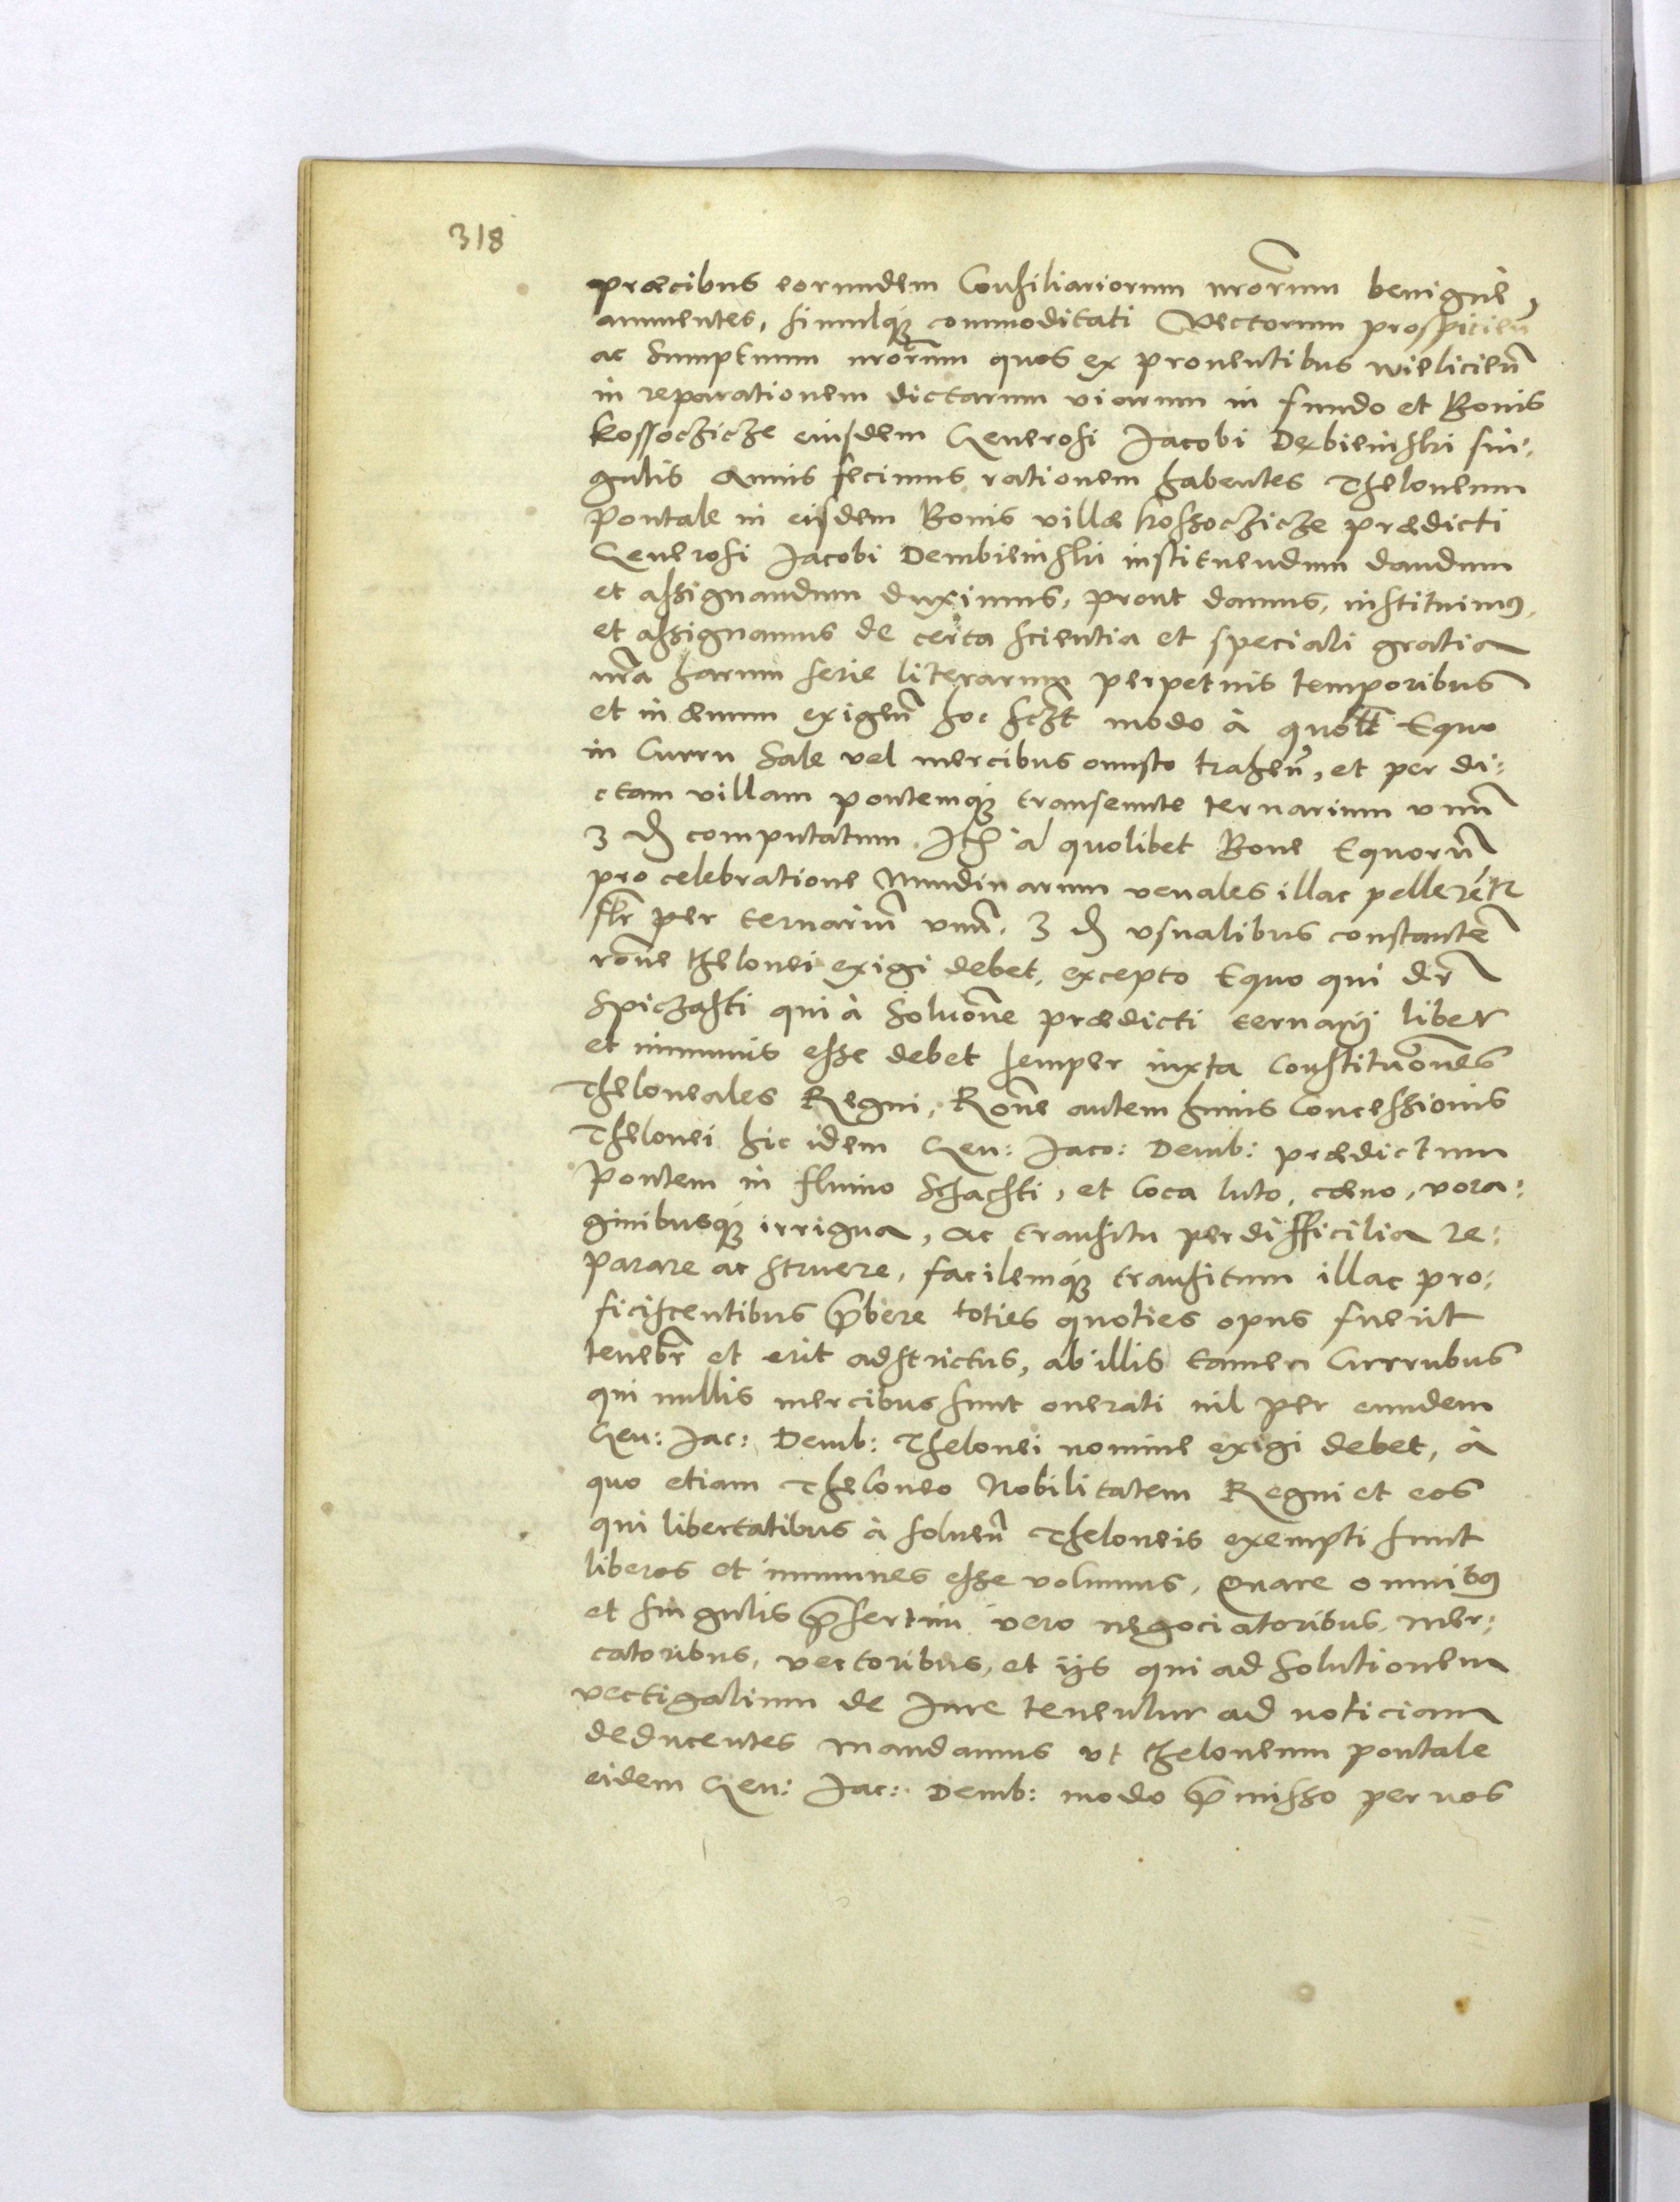 318
præcibus eorundem Consiliariorum nrōrum benignè
annuentes, simulq́ꝫ commoditati Vectorum prospicieñ
ac Sumptuum nrōrum quos ex prouentibus wielicieñ
in reparationem dictarum viarum in fundo et Bonis
kossoczicze eiusdem Generosi Jacobi Dexbieinski sin:
gulis Annis fecimus rationem habentes Theloneum
pontale in eisdem Bonis villæ kossoczicze prædicti
Generosi Jacobi Dembieinski instituendum dandum
et assignandum duximus, prout damus, instituimꝯ,
et assignamus de certa scientia et speciali gratia
nrā harum serie literarum perpetuis temporibus
et in æuum exigeñ hoc sczt modo à quolt Equo
in Curru Sale vel mercibus onusto traheñ, et per di:
ctam villam pontemq́ꝫ transeunte ternarium vnū
3 ₰ computatum. Itē à quolibet Boue Equorū
pro celebratione Nundinarum venales illac pellerētr
sr per ternariū vnū. 3 ₰ vsualibus constantē
rōne thelonei exigi debet, excepto Equo qui dr
Spiczasti qui à Soluōne prædicti ternarij liber
et immunis esse debet semper iuxta Constituōnes
Theloneales Regni, Rōne autem huius Concessionis
Thelonei hic idem Gen: Jaco: Demb: prædictum
pontem in fluuio Schachti, et Loca luto, cæno, vora:
ginibusq́ꝫ irrigua, ac transitu perdifficilia re:
parare ac struere, facilemq́ꝫ transitum illac pro:
ficiscentibus p̄bere toties quoties opus fuerit
tenebr et erit adstrictus, ab illis tamen Currubus
qui nullis mercibus sunt onerati nil per eundem
Gen: Jac: Demb: Thelonei nomine exigi debet, à
quo etiam Theloneo Nobilitatem Regni et eos
qui libertatibus à solueñ Theloneis exempti sunt
liberos et immunes esse volumus, Quare omnibꝯ
et singulis p̄sertim vero negociatoribus, mer:
catoribus, vectoribus, et ijs qui ad solutionem
vectigalium de Jure tenentur ad noticiam
deducentes mandamus vt theloneum pontale
eidem Gen: Jac: Demb: modo p̄misso per nos